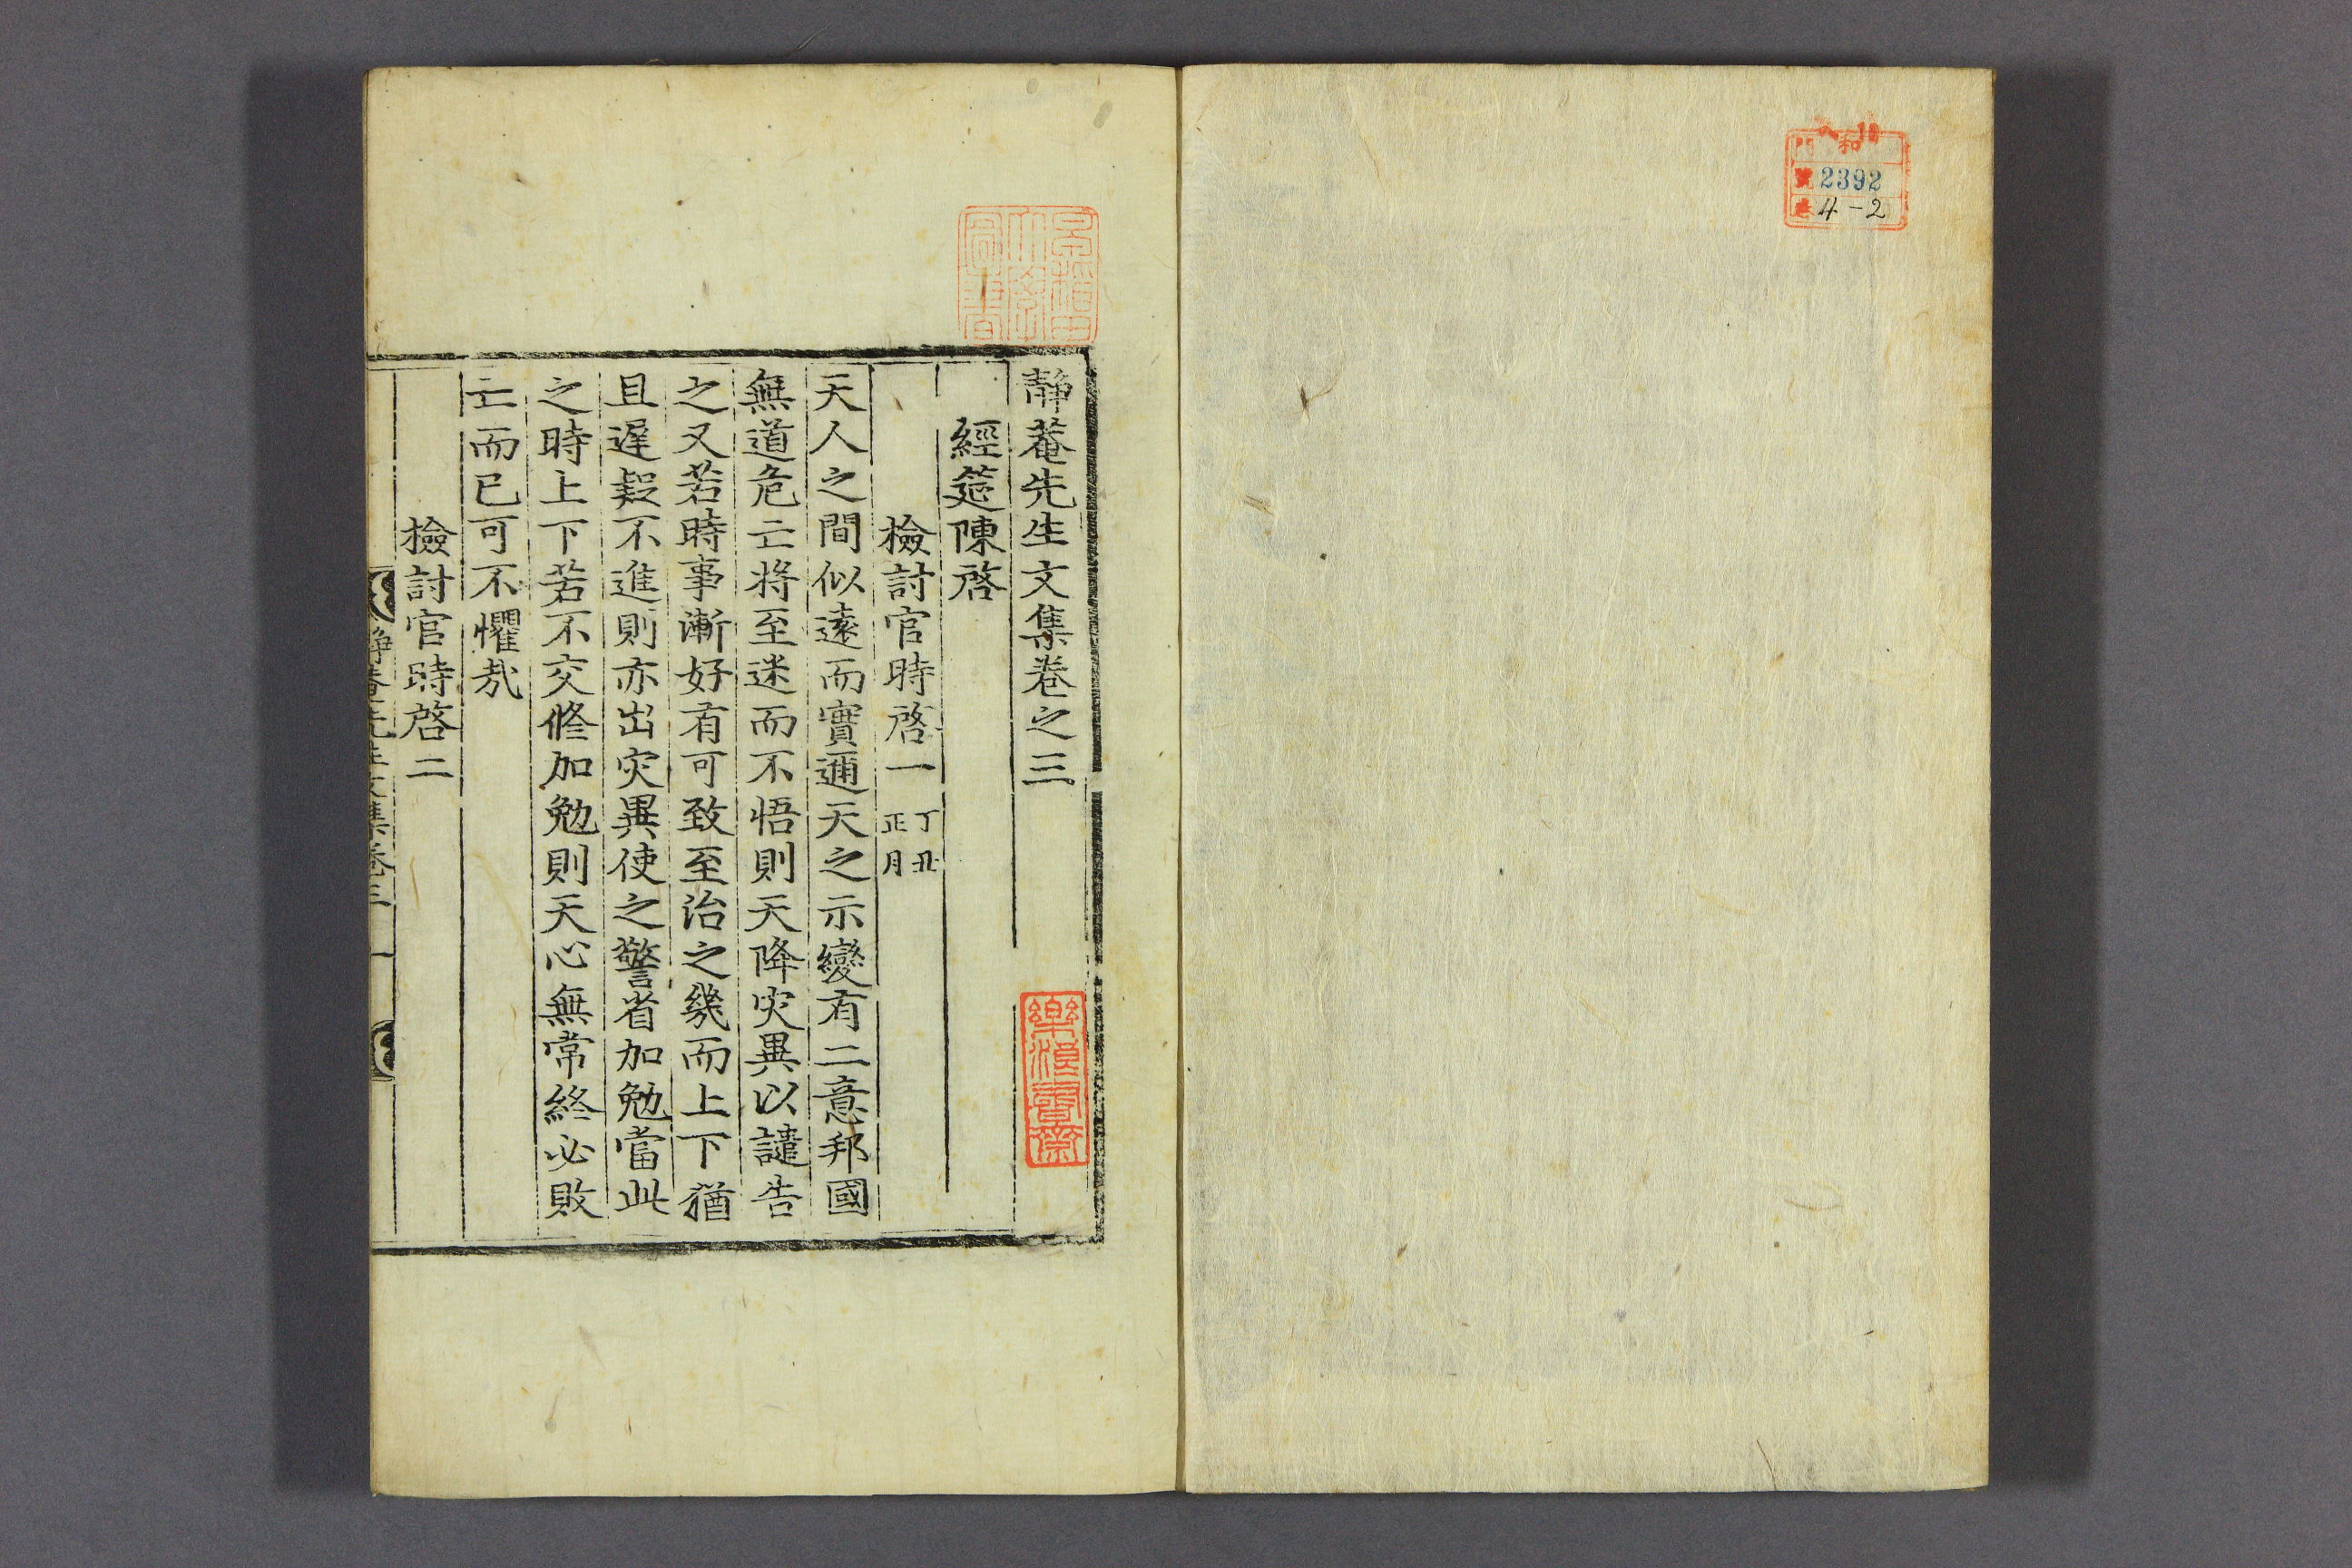 和
號 2392
卷 4-2
靜菴先生文集卷之三
經筵陳啓
檢討官時啓一 丁丑正月
天人之間似遠而實邇天之示變有二意邦國
無道危亡將至迷而不悟則天降灾異以譴告
之又若時事漸好有可致至治之幾而上下猶
且遅疑不進則亦出灾異使之警省加勉當此
之時上下若不交修加勉則天心無常終必敗
亡而已可不懼哉
檢討官時啓二
靜菴先生文集卷三 一